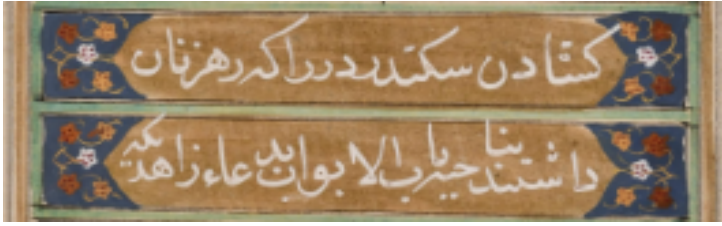 کشادن سکندر در را که رهزنان
داشتند بناحیه باب الابواب بدعاء زاهدیکه